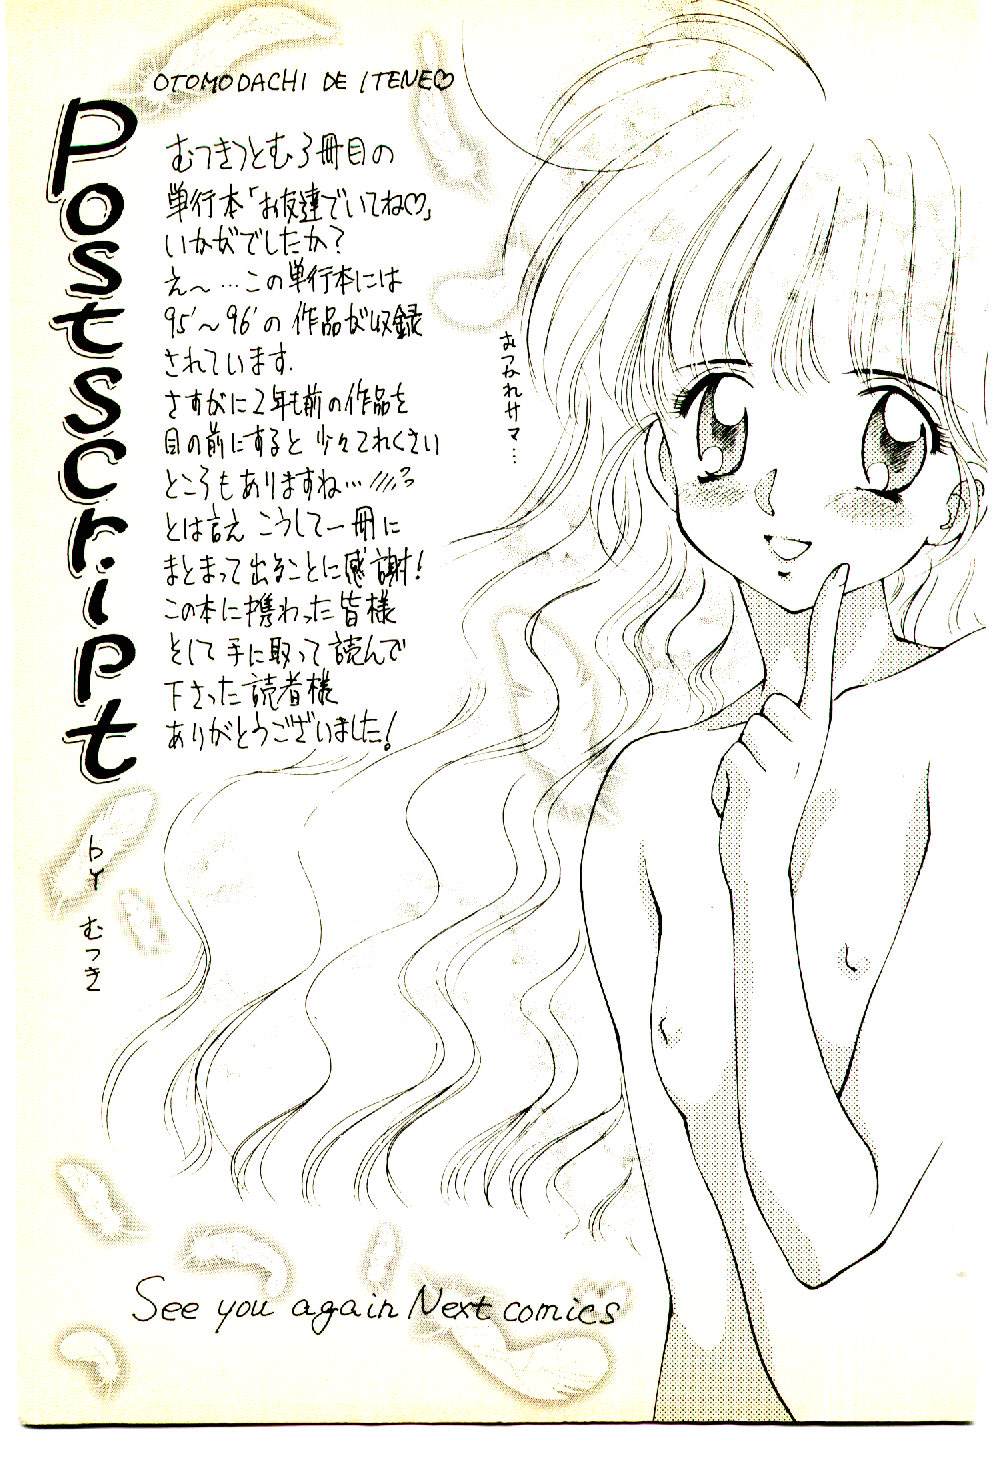 OTOMODACHI DE ITENE♡
Postscript
むつきつとむ3冊目の
単行本「お友達でいてね♡」
いかがでしたか?
え〜…この単行本には
95'〜96'の作品が収録
されています.
さすがに2年も前の作品を
目の前にすると少々てれくさい
ところもありますね…
とは言え こうして一冊に
まとまって出ることに感謝!
この本に携わった皆様
そして手に取って読んで
下さった読者様
ありがとうございました!
おつかれサマ…
by むつき
See you again Next comics